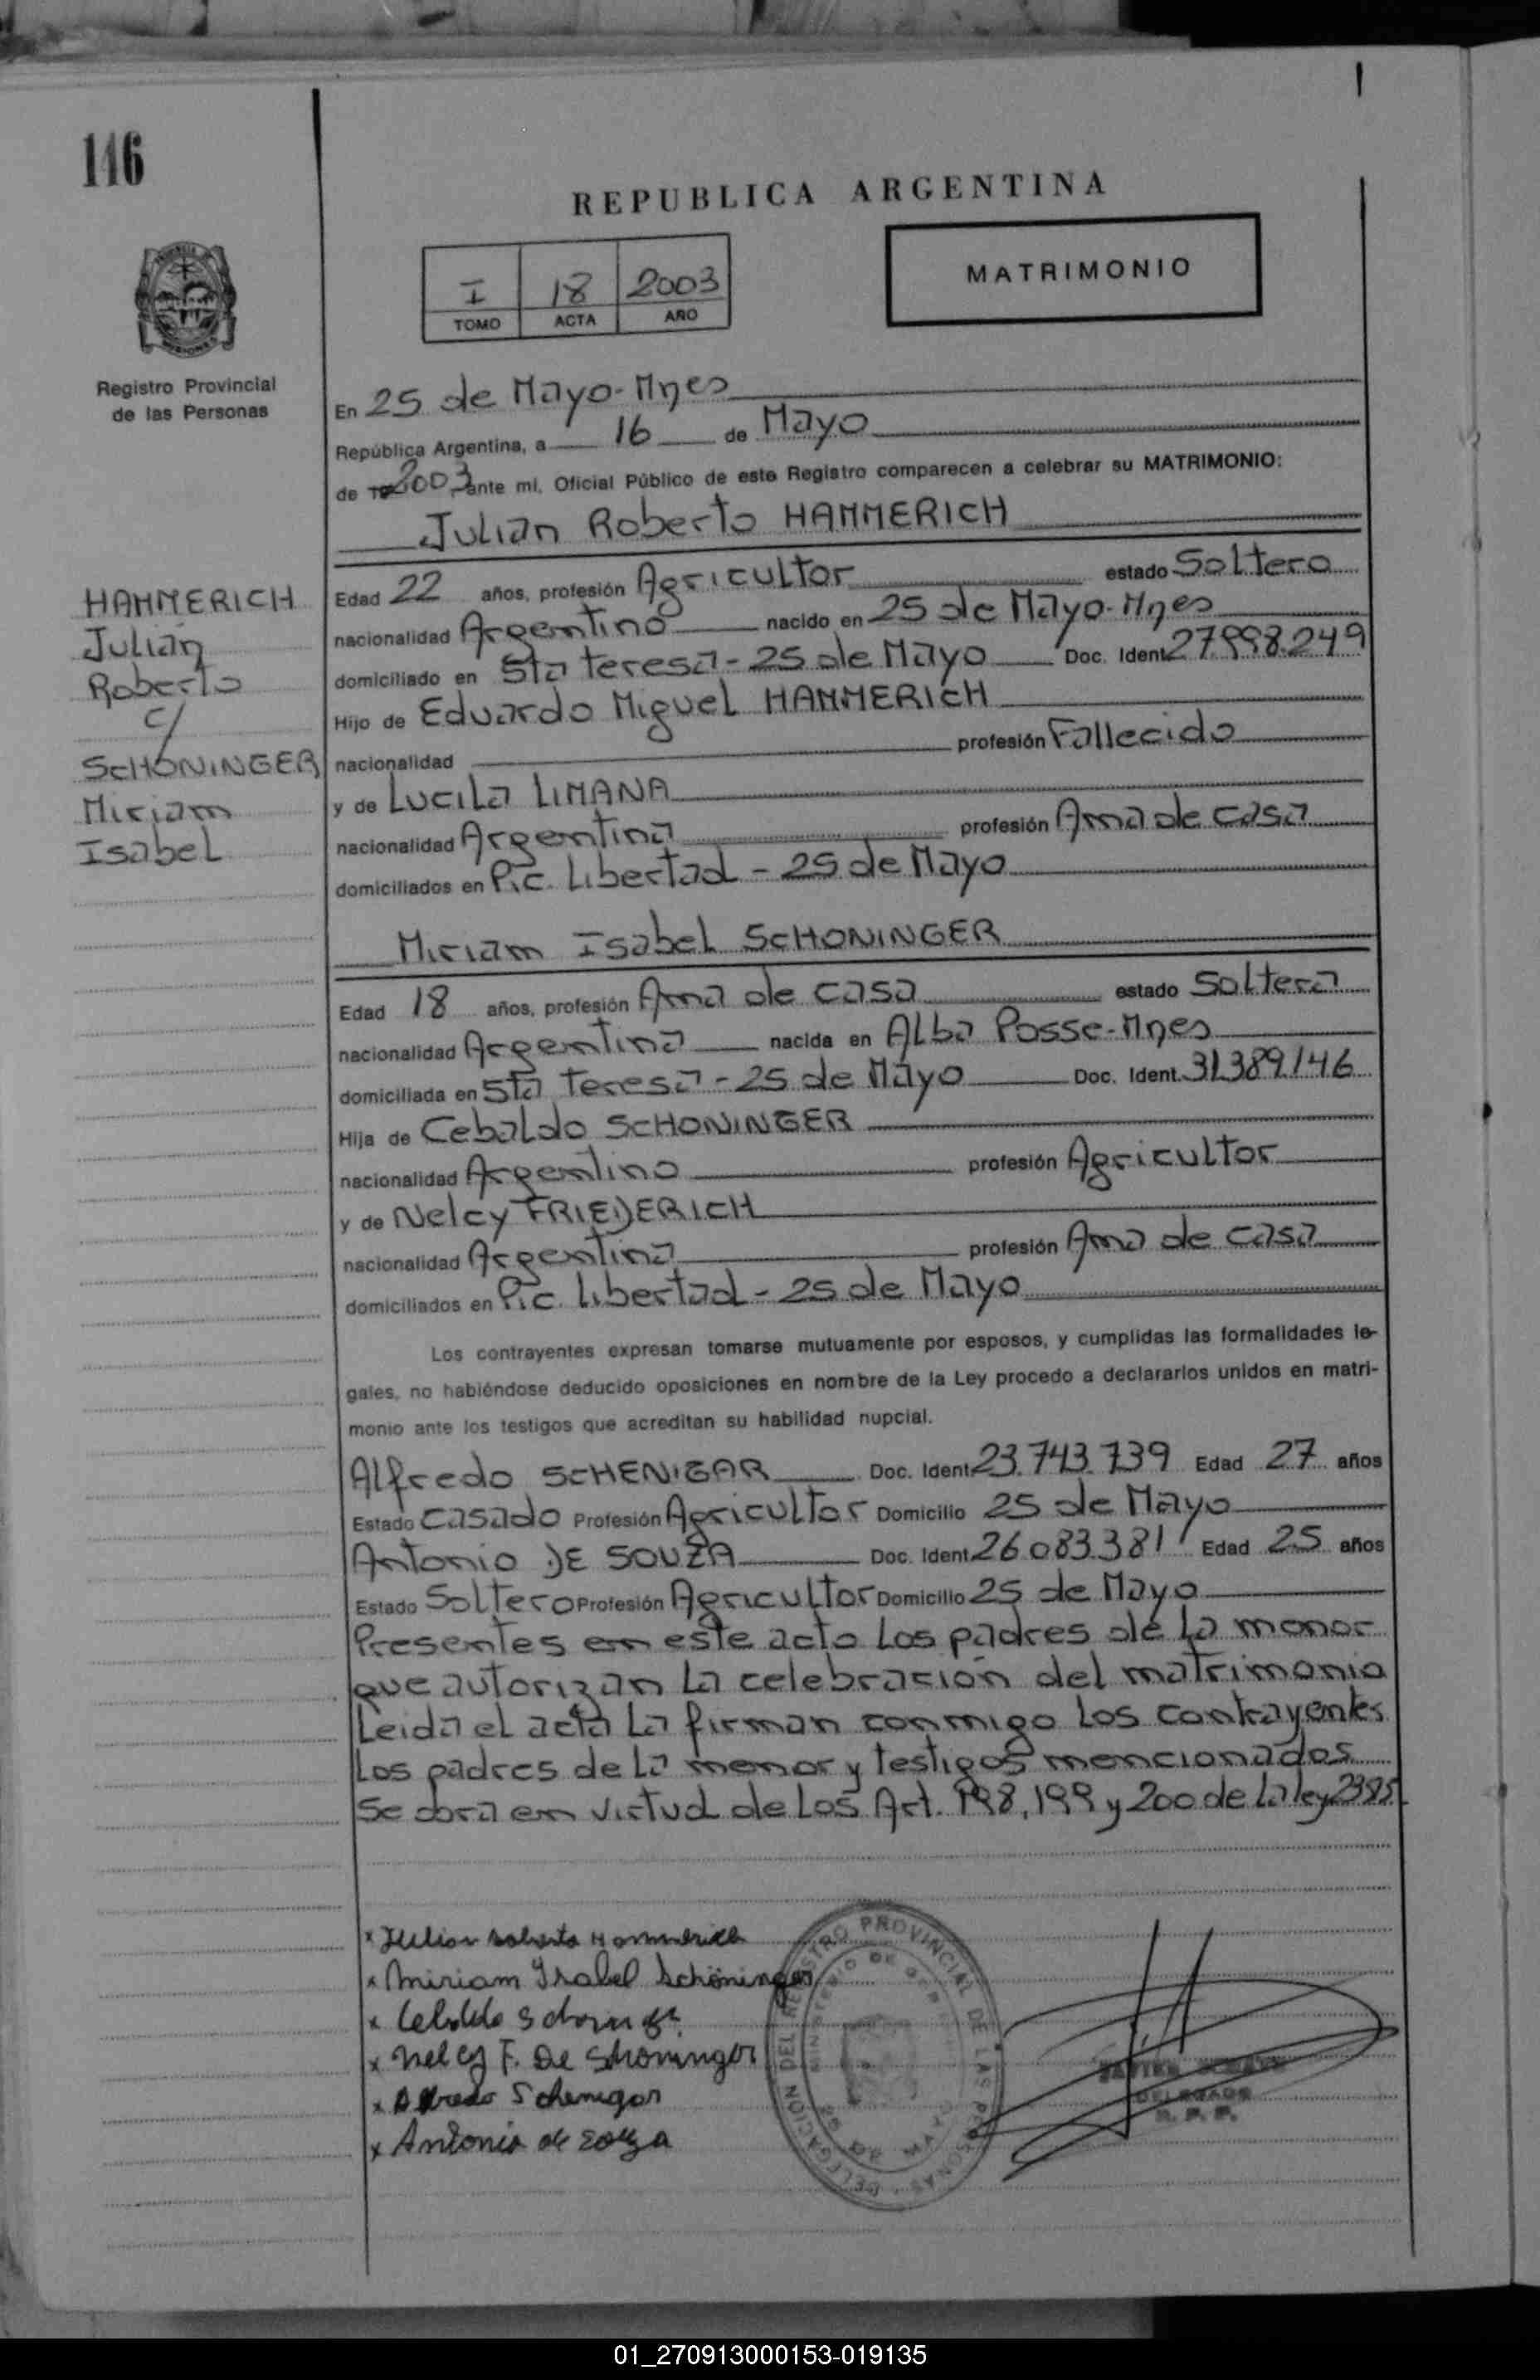 116
REPUBLICA ARGENTINA
I 18 2003
TOMO ACTA AÑO
MATRIMONIO
Registro Provincial
de las Personas
En 25 de Mayo-Mnes
República Argentina, a 16 de Mayo
de 2003, ante mi, Oficial Público de este Registro comparecen a celebrar su MATRIMONIO:
Julian Roberto HAMMERICH
HAMMERICH
Julian
Roberto
c/
SCHONINGER
Miriam
Isabel
Edad 22 años, profesión Agricultor estado Soltero
nacionalidad Argentino nacido en 25 de Mayo-Mnes
domiciliado en Sta teresa - 25 de Mayo Doc. Ident. 27.998.249
Hijo de Eduardo Miguel HAMMERICH
nacionalidad profesión Fallecido
y de Lucila LIMANA
nacionalidad Argentina profesión Ama de casa
domiciliados en Pic. Libertad - 25 de Mayo
Miriam Isabel SCHONINGER
Edad 18 años, profesión Ama de casa estado Soltera
nacionalidad Argentina nacida en Alba Posse-Mnes
domiciliada en Sta Teresa - 25 de Mayo Doc. Ident. 31.389.146
Hija de Cebaldo SCHONINGER
nacionalidad Argentino profesión Agricultor
y de Nelcy FRIEDERICH
nacionalidad Argentina profesión Ama de casa
domiciliados en Pic. Libertad - 25 de Mayo
Los contrayentes expresan tomarse mutuamente por esposos, y cumplidas las formalidades le-
gales, no habiéndose deducido oposiciones en nombre de la Ley procedo a declararlos unidos en matri-
monio ante los testigos que acreditan su habilidad nupcial.
Alfredo SCHENIGAR Doc. Ident. 23.743.739 Edad 27 años
Estado Casado Profesión Agricultor Domicilio 25 de Mayo
Antonio DE SOUZA Doc. Ident. 26.083.381 Edad 25 años
Estado Soltero Profesión Agricultor Domicilio 25 de Mayo
Presentes en este acto los padres de la menor
que autorizan la celebración del matrimonio
Leida el acta la firman conmigo los contrayentes
los padres de la menor y testigos mencionados
Se obra en virtud de los Art. 198, 199 y 200 de la ley 2393
x Julian Roberto Hammerich
x Miriam Isabel Schöninger
x Cebaldo Schoninger
x Nelcy F. De Schoninger
x Alfredo Schenigar
x Antonio de Souza
DELEGACION DEL REGISTRO PROVINCIAL DE LAS PERSONAS
MINISTERIO DE
25 DE MAYO
DELEGADO
R. P. P.
01_270913000153-019135